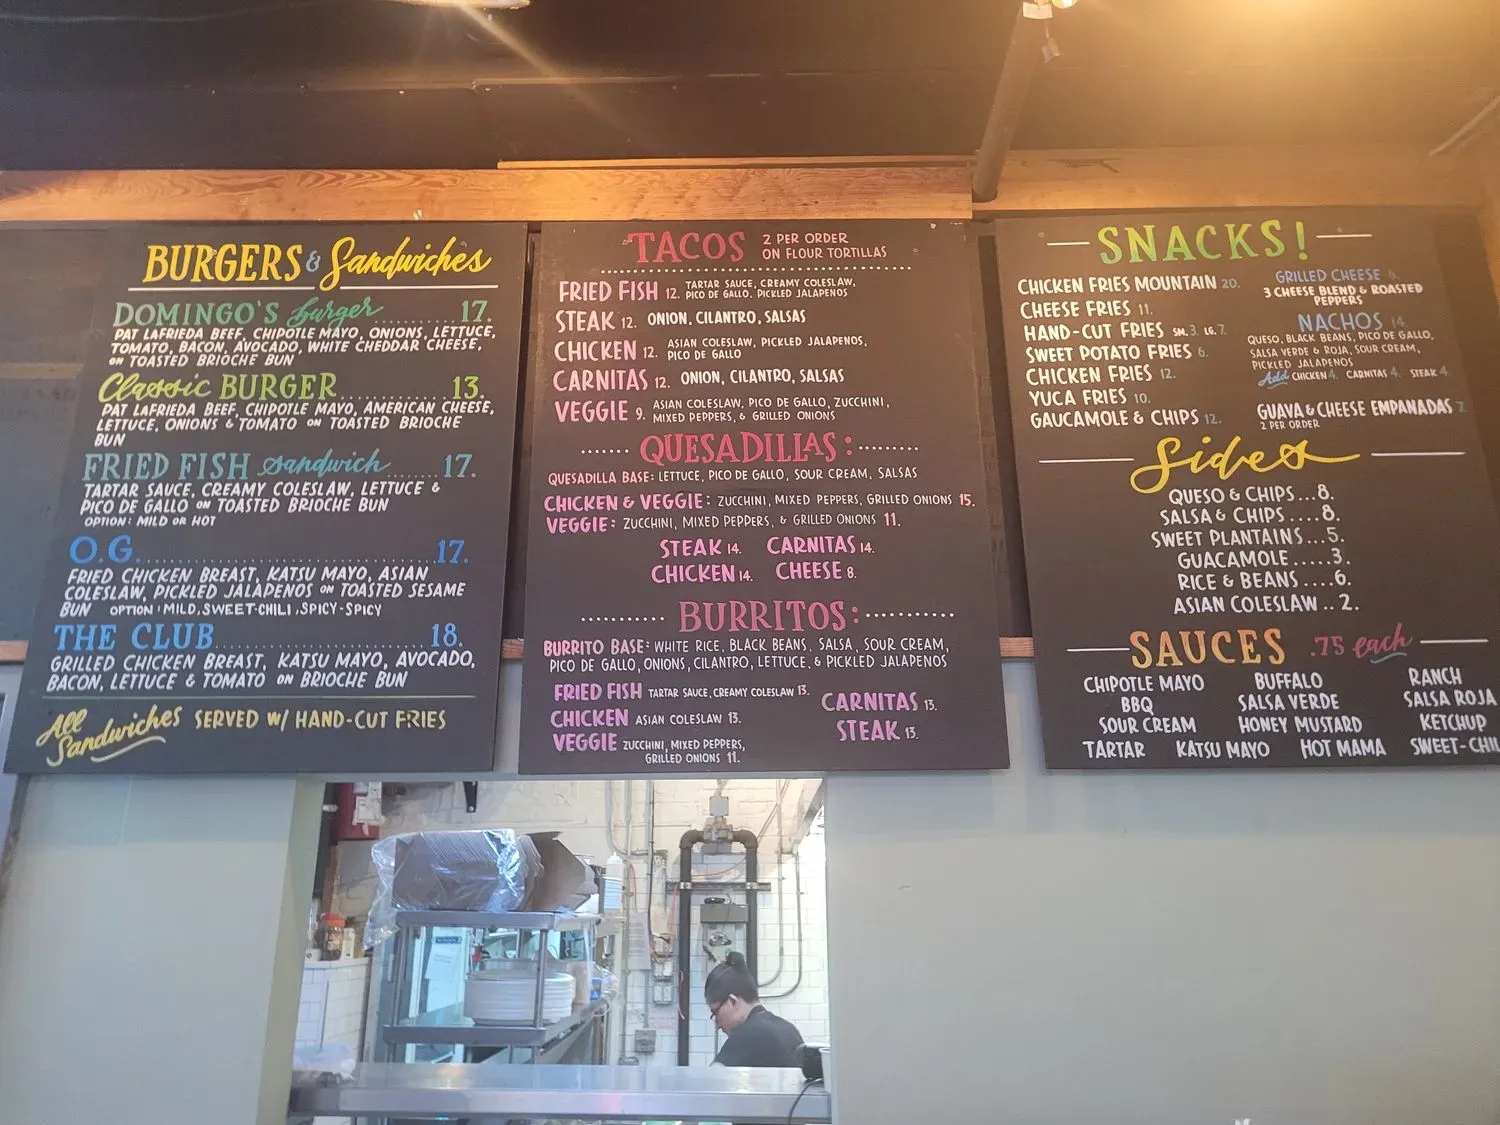 BURGERS & Sandwiches
DOMINGO'S burger 17.
PAT LAFRIEDA BEEF, CHIPOTLE MAYO, ONIONS, LETTUCE,
TOMATO, BACON, AVOCADO, WHITE CHEDDAR CHEESE,
ON TOASTED BRIOCHE BUN
Classic BURGER 13.
PAT LAFRIEDA BEEF, CHIPOTLE MAYO, AMERICAN CHEESE,
LETTUCE, ONIONS & TOMATO ON TOASTED BRIOCHE
BUN
FRIED FISH sandwich 17.
TARTAR SAUCE, CREAMY COLESLAW, LETTUCE &
PICO DE GALLO ON TOASTED BRIOCHE BUN
OPTION: MILD OR HOT
O.G. 17.
FRIED CHICKEN BREAST, KATSU MAYO, ASIAN
COLESLAW, PICKLED JALAPENOS ON TOASTED SESAME
BUN OPTION: MILD, SWEET-CHILI, SPICY-SPICY
THE CLUB 18.
GRILLED CHICKEN BREAST, KATSU MAYO, AVOCADO,
BACON, LETTUCE & TOMATO ON BRIOCHE BUN
All Sandwiches SERVED W/ HAND-CUT FRIES
TACOS 2 PER ORDER
ON FLOUR TORTILLAS
FRIED FISH 12. TARTAR SAUCE, CREAMY COLESLAW,
PICO DE GALLO, PICKLED JALAPENOS
STEAK 12. ONION, CILANTRO, SALSAS
CHICKEN 12. ASIAN COLESLAW, PICKLED JALAPENOS,
PICO DE GALLO
CARNITAS 12. ONION, CILANTRO, SALSAS
VEGGIE 9. ASIAN COLESLAW, PICO DE GALLO, ZUCCHINI,
MIXED PEPPERS, & GRILLED ONIONS
QUESADILLAS:
QUESADILLA BASE: LETTUCE, PICO DE GALLO, SOUR CREAM, SALSAS
CHICKEN & VEGGIE: ZUCCHINI, MIXED PEPPERS, GRILLED ONIONS 15.
VEGGIE: ZUCCHINI, MIXED PEPPERS, & GRILLED ONIONS 11.
STEAK 14. CARNITAS 14.
CHICKEN 14. CHEESE 8.
BURRITOS:
BURRITO BASE: WHITE RICE, BLACK BEANS, SALSA, SOUR CREAM,
PICO DE GALLO, ONIONS, CILANTRO, LETTUCE, & PICKLED JALAPENOS
FRIED FISH TARTAR SAUCE, CREAMY COLESLAW 13.
CHICKEN ASIAN COLESLAW 13.
VEGGIE ZUCCHINI, MIXED PEPPERS,
GRILLED ONIONS 11.
CARNITAS 13.
STEAK 13.
SNACKS!
CHICKEN FRIES MOUNTAIN 20.
CHEESE FRIES 11.
HAND-CUT FRIES SM. 3. LG. 7.
SWEET POTATO FRIES 6.
CHICKEN FRIES 12.
YUCA FRIES 10.
GAUCAMOLE & CHIPS 12.
GRILLED CHEESE
3 CHEESE BLEND & ROASTED
PEPPERS
NACHOS 14.
QUESO, BLACK BEANS, PICO DE GALLO,
SALSA VERDE & ROJA, SOUR CREAM,
PICKLED JALAPENOS
Add CHICKEN 4. CARNITAS 4. STEAK 4.
GUAVA & CHEESE EMPANADAS 7.
2 PER ORDER
Sides
QUESO & CHIPS...8.
SALSA & CHIPS....8.
SWEET PLANTAINS...5.
GUACAMOLE.....3.
RICE & BEANS....6.
ASIAN COLESLAW..2.
SAUCES .75 each
CHIPOTLE MAYO BUFFALO RANCH
BBQ SALSA VERDE SALSA ROJA
SOUR CREAM HONEY MUSTARD KETCHUP
TARTAR KATSU MAYO HOT MAMA SWEET-CHIL